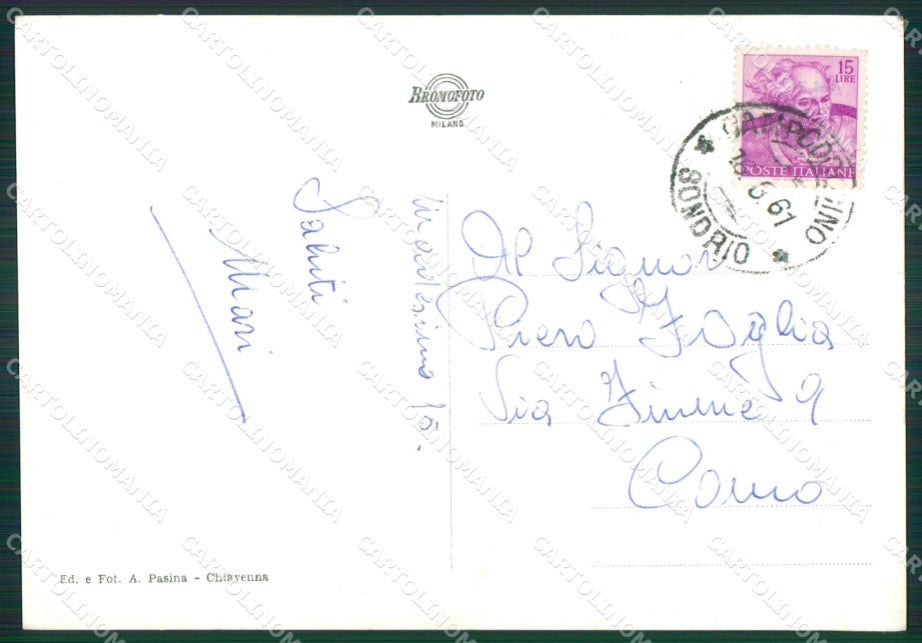 BROMOFOTO
MILANO
15
LIRE
POSTE ITALIANE
CAMPODOLCINO
SONDRIO
6.61
Saluti
Mari
Madesimo 15.
Al Signor
Piero Foglia
Via Fiume 9
Como
Ed. e Fot. A. Pasina - Chiavenna
CARTOLINOMANIA